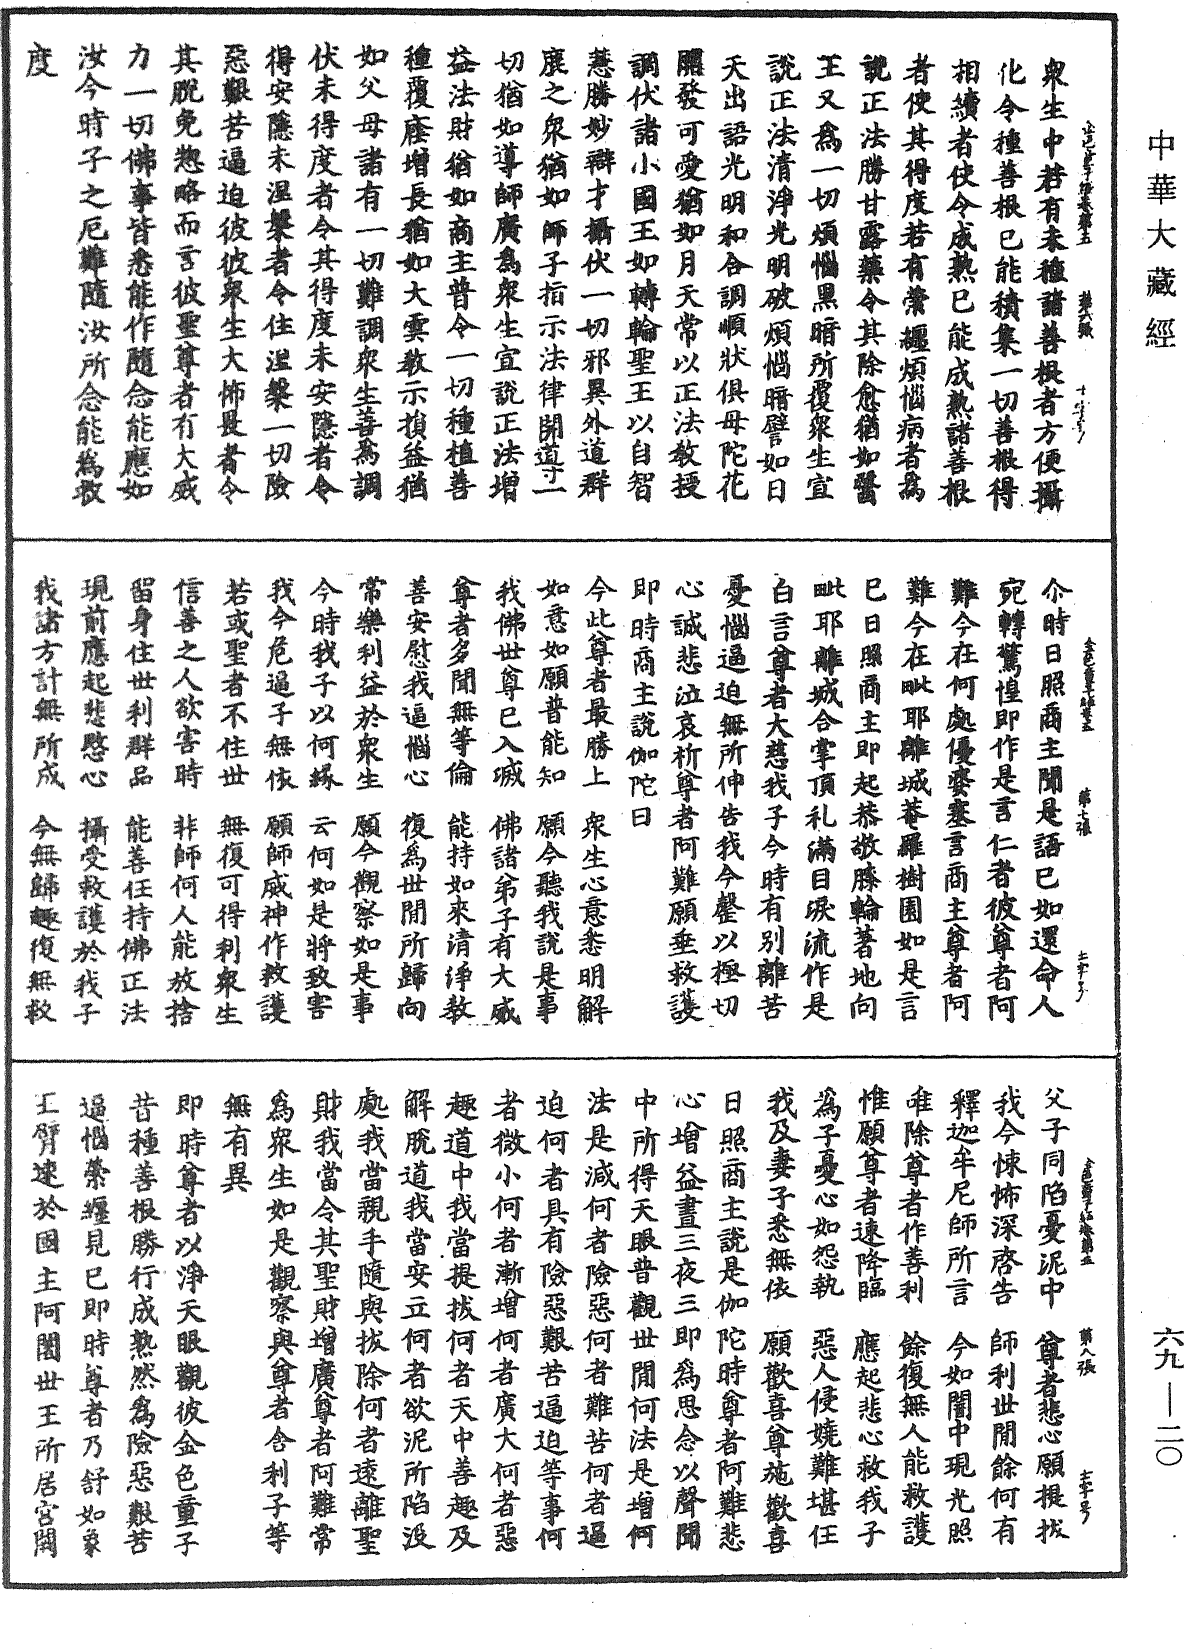 中華大藏經
衆生中若有未種諸善根者方便攝
化令種善根已能積集一切善根得
相續者使令成熟已能成熟諸善根
者使其得度若有縈纏煩惱病者爲
說正法勝甘露藥令其除愈猶如醫
王又爲一切煩惱黑暗所覆衆生宣
說正法清淨光明破煩惱暗譬如日
天出語光明和合調順狀俱母陀花
開發可愛猶如月天常以正法教授
調伏諸小國王如轉輪聖王以自智
慧勝妙辯才攝伏一切邪異外道群
鹿之衆猶如師子指示法律開道寸一
切猶如導師廣爲衆生宣說正法增
益法財猶如商主普令一切種植善
種覆䕃增長猶如大雲教示損益猶
如父母諸有一切難調衆生善爲調
伏未得度者令其得度未安隱者令
得安隱未涅槃者令住涅槃一切險
惡艱苦逼迫彼彼衆生大怖畏者令
其脫免揔略而言彼聖尊者有大威
力一切佛事皆悉能作隨念能應如
汝今時子之厄難隨汝所念能爲救
度
尒時日照商主聞是語已如還命人
宛轉驚惶即作是言仁者彼尊者阿
難今在何處優婆塞言商主尊者阿
難今在毗耶離城菴羅樹園如是言
已日照商主即起恭敬膝輪著地向
毗耶離城合掌頂礼滿目淚流作是
白言尊者大慈我子今時有別離苦
憂惱逼迫無所伸告我今罄以極切
心誠悲泣哀祈尊者阿難願垂救護
即時商主說伽陀曰
今此尊者最勝上　衆生心意悉明解
如意如願普能知　願今聽我說是事
我佛世尊已入滅　佛諸弟子有大威
尊者多聞無等倫　能持如來清淨教
善安慰我逼惱心　復爲世間所歸向
常樂利益於衆生　願今觀察如是事
今時我子以何緣　云何如是將致害
我今危逼子無依　願師威神作救護
若或聖者不住世　無復可得利衆生
信善之人欲害時　非師何人能放捨
留身住世利群品　能善任持佛正法
現前應起悲愍心　攝受救護於我子
我諸方計無所成　今無歸趣復無救
父子同陷憂泥中　尊者悲心願提拔
我今悚怖深啓告　師利世間餘何有
釋迦牟尼師所言　今如闇中現光照
唯除尊者作善利　餘復無人能救護
惟願尊者速降臨　應起悲心救我子
爲子憂心如怨執　惡人侵嬈難堪任
我及妻子悉無依　願歡喜尊施歡喜
日照商主說是伽陀時尊者阿難悲
心增益晝三夜三即爲思念以聲聞
中所得天眼普觀世間何法是增何
法是減何者險惡何者難苦何者逼
迫何者具有險惡艱苦逼迫等事何
者微小何者漸增何者廣大何者惡
趣道中我當提拔何者天中善趣及
解脫道我當安立何者欲泥所陷沒
處我當親手隨與拔除何者遠離聖
財我當令其聖財增廣尊者阿難常
爲衆生如是觀察與尊者舍利子等
無有異
即時尊者以淨天眼觀彼金色童子
昔種善根勝行成熟然爲險惡艱苦
逼惱縈纏見已即時尊者乃舒如象
王臂速於國主阿闍世王所居宮闕
六九—二〇